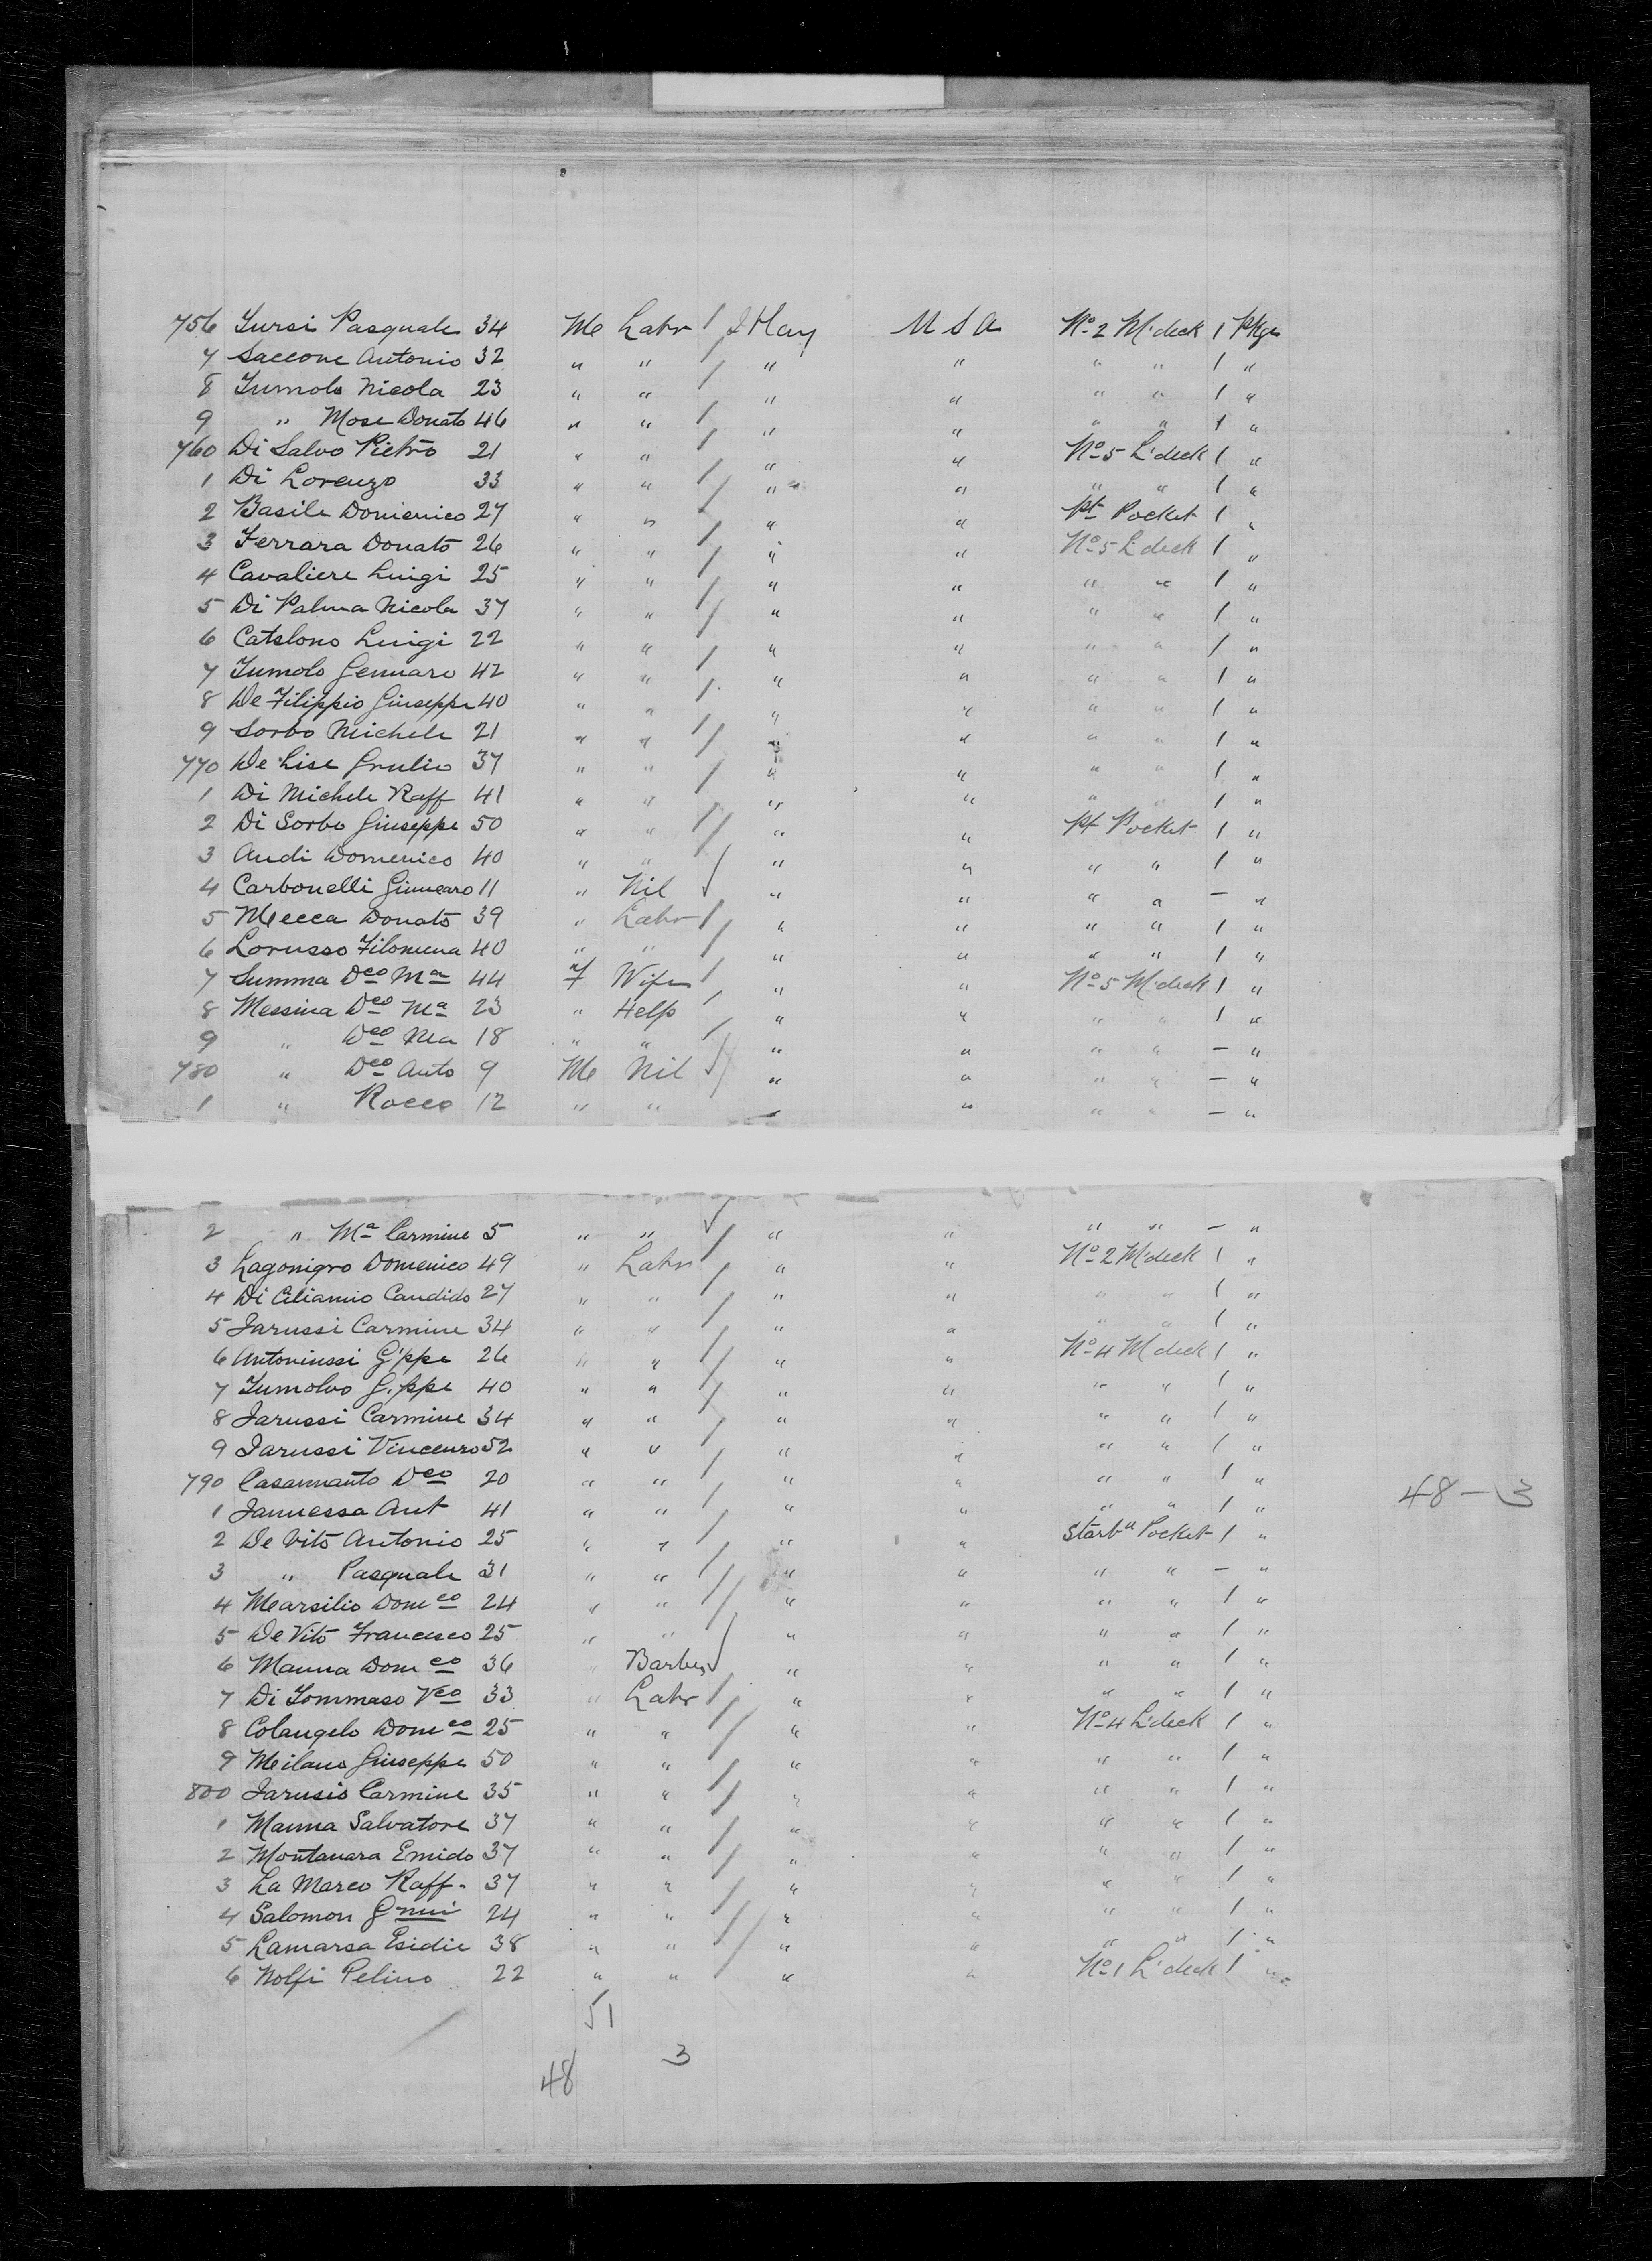 756 Tursi Pasquale 34 Me Labr / Italy U S A No 2 M. deck 1 Pkge
7 Saccone Antonio 32 " " / " " " " 1 "
8 Tumolo Nicola 23 " " / " " " " 1 "
9 " Mose Donato 46 " " / " " " " 1 "
760 Di Salvo Pietro 21 " " / " " No 5 L. deck 1 "
1 Di Lorenzo 33 " " / " " " " 1 "
2 Basile Domenico 27 " " / " " Pt Pocket 1 "
3 Ferrara Donato 26 " " / " " No 5 L. deck 1 "
4 Cavaliere Luigi 25 " " / " " " " 1 "
5 Di Palma Nicola 37 " " / " " " " 1 "
6 Catalono Luigi 22 " " / " " " " 1 "
7 Tumolo Gennaro 42 " " / " " " " 1 "
8 De Filippio Giuseppe 40 " " / " " " " 1 "
9 Sorbo Michele 21 " " / " " " " 1 "
770 De Lise Grulio 37 " " / " " " " 1 "
1 Di Michele Raff 41 " " / " " " " 1 "
2 Di Sorbo Giuseppe 50 " " / " " Pt Pocket 1 "
3 Audi Domenico 40 " " / " " " " 1 "
4 Carbonelli Ginnearo 11 " Nil √ " " " " – "
5 Mecca Donato 39 " Labr / " " " " 1 "
6 Lorusso Filomena 40 " " / " " " " 1 "
7 Summa Dco Ma 44 f Wife / " " No 5 M. deck 1 "
8 Messina Dco Ma 23 " Help / " " " " 1 "
9 " Dco Ma 18 " " / " " " " – "
780 " Dco Anto 9 Me Nil √ " " " " – "
1 " Rocco 12 " " " " " " – "
2 " Ma Carmine 5 " " √ " " " " – "
3 Lagonigro Domenico 49 " Labr / " " No 2 M deck 1 "
4 Di Ciliamio Candido 27 " " / " " " " 1 "
5 Jarussi Carmine 34 " " / " " " " 1 "
6 Antoniussi G'ppe 26 " " / " " No 4 M deck 1 "
7 Tumolvo G.ppe 40 " " / " " " " 1 "
8 Jarussi Carmine 34 " " / " " " " 1 "
9 Jarussi Vincenzo 52 " " / " " " " 1 "
790 Casamanto Dco 20 " " / " " " " 1 " 48 – 3
1 Jannessa Ant 41 " " / " " " " 1 "
2 De Vito Antonio 25 " " / " " Starb" Pocket 1 "
3 " Pasquale 31 " " / " " " " – "
4 Mearsilio Domco 24 " " / " " " " 1 "
5 De Vito Francesco 25 " " / " " " " 1 "
6 Manna Domco 36 " Barber √ " " " " 1 "
7 Di Tommaso Vco 33 " Labr / " " " " 1 "
8 Colangelo Domco 25 " " / " " No 4 L. deck 1 "
9 Meilano Giuseppe 50 " " / " " " " 1 "
800 Jarusio Carmine 35 " " / " " " " 1 "
1 Manna Salvatore 37 " " / " " " " 1 "
2 Montanara Emido 37 " " / " " " " 1 "
3 La Marco Raff. 37 " " / " " " " 1 "
4 Salomon Gnni 24 " " / " " " " 1 "
5 Lamarsa Esidie 38 " " / " " " " 1 "
6 Nolfi Pelino 22 " " / " " No 1 L. deck 1 "
51
3
48